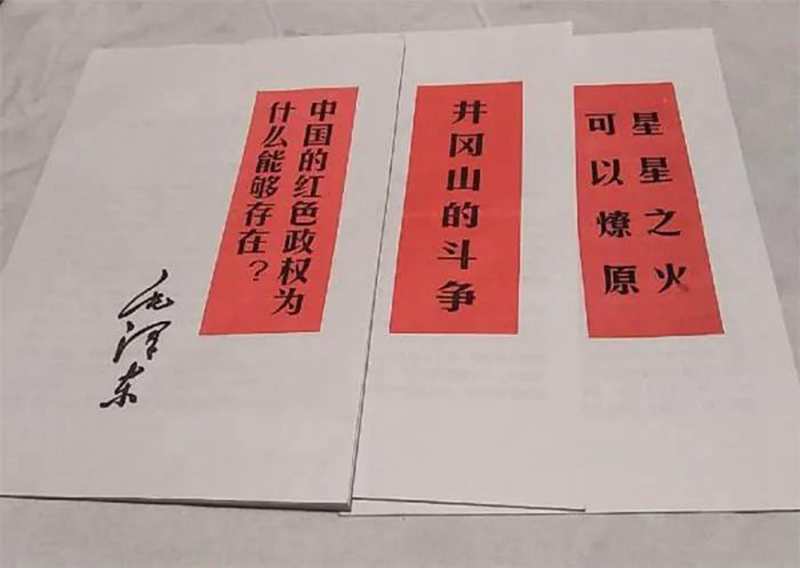 中国的红色政权为
什么能够存在？
毛泽东
井冈山的斗争
星星之火
可以燎原